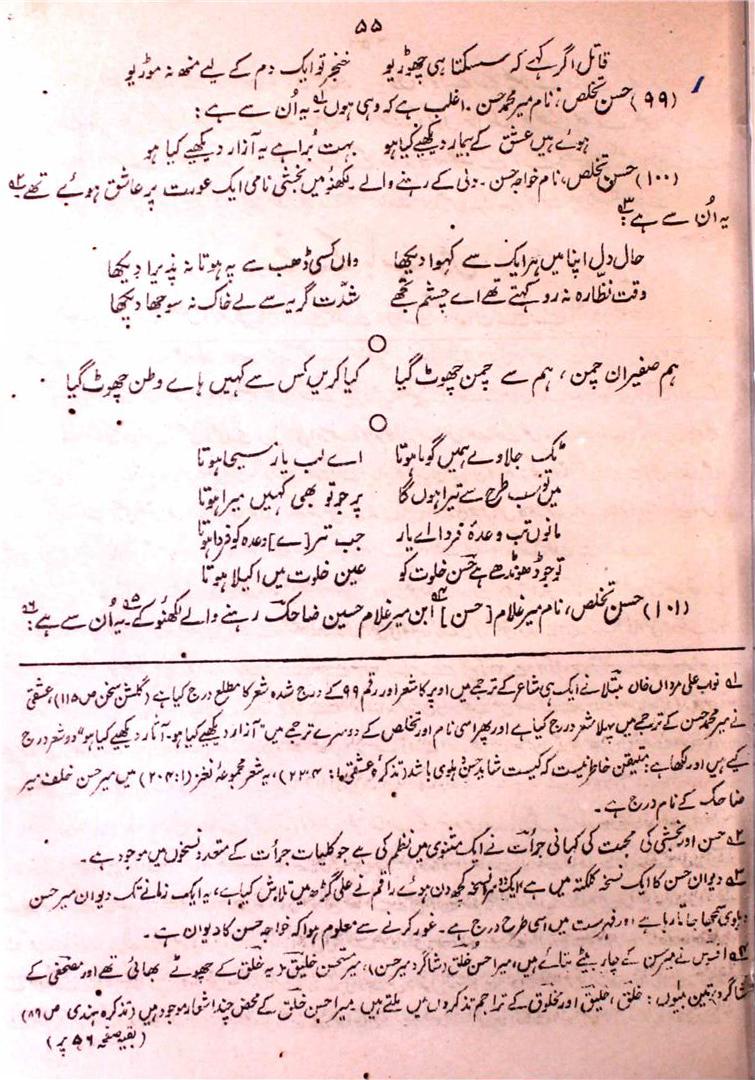 ۵۵
قاتل اگر کہے کہ سسکتا ہی چھوڑیو خنجر تو ایک دم کے لیے منھ نہ موڑیو
(۹۹) حسن تخلص، نام میر محمد حسن۔ اغلب ہے کہ وہی ہوں۔۱؎ یہ اُن سے ہے:
ہوئے ہیں عشق کے بیمار دیکھیے کیا ہو بہت بُرا ہے یہ آزار دیکھیے کیا ہو
(۱۰۰) حسن تخلص، نام خواجہ حسن۔ دلی کے رہنے والے۔ لکھنؤ میں بخشی نامی ایک عورت پر عاشق ہوئے تھے۔۲؎
یہ اُن سے ہے:۳؎
حال دل اپنا میں ہر ایک سے کہوا دیکھا واں کسی ڈھب سے یہ ہوتا نہ پذیرا دیکھا
وقت نظارہ نہ رو کہتے تھے اے چشم تجھے شدّت گریہ سے لے خاک نہ سوجھا دیکھا
ہم صفیران چمن، ہم سے چمن چھوٹ گیا کیا کریں کس سے کہیں ہاے وطن چھوٹ گیا
ٹک جلاوے ہمیں گویا ہوتا اے لب یار مسیحا ہوتا
میں تو سب طرح سے تیرا ہوں گا پر جو تو بھی کہیں میرا ہوتا
مانوں تب وعدۂ فردا اے یار جب تر[ے] وعدہ کو فردا ہوتا
تو جو ڈھونڈھے ہے حسن خلوت کو عین خلوت میں اکیلا ہوتا
(۱۰۱) حسن تخلص، نام میر غلام [حسن]۴؎ ابن میر غلام حسین ضاحک رہنے والے لکھنؤ کے۔۵؎ یہ اُن سے ہے:۶؎
۱؎ نواب علی مرداں خاں مبتلا نے ایک ہی شاعر کے ترجمے میں اوپر کا شعر اور رقم ۹۹ کے درج شدہ شعر کا مطلع درج کیا ہے (گلشن سخن ص ۱۱۵)، عشقی
نے میر محمد حسن کے ترجمے میں پہلا شعر درج کیا ہے اور پھر اسی نام اور تخلص کے دوسرے ترجمے میں "آزار دیکھیے کیا ہو۔ آثار دیکھیے کیا ہو" دو شعر درج
کیے ہیں اور لکھا ہے: متیقن خاطر نیست کہ کیست شاید حسن دہلوی باشد (تذکرۂ عشقی ۱: ۲۳۴)، یہ شعر مجموعۂ نغز (۱: ۲۰۴) میں میر حسن خلف میر
ضاحک کے نام درج ہے۔
۲؎ حسن اور بخشی کی محبت کی کہانی جرأت نے ایک مثنوی میں نظم کی ہے جو کلیات جرأت کے متعدد نسخوں میں موجود ہے۔
۳؎ دیوان حسن کا ایک نسخہ کلکتہ میں ہے، ایک نسخہ کچھ دن ہوئے راقم نے علی گڑھ میں تلاش کیا ہے، یہ ایک زمانے تک دیوان میر حسن
دہلوی سمجھا جاتا رہا ہے اور فہرست میں اسی طرح درج ہے۔ غور کرنے سے معلوم ہوا کہ خواجہ حسن کا دیوان ہے۔
۴؎ افسوس نے میر حسن کے چار بیٹے بتائے ہیں، میر احسن خلق (شاگرد میر حسن)، میر مستحسن خلیق (یہ خلق کے چھوٹے بھائی تھے اور مصحفی کے
شاگرد)، تین بیٹوں: خلق، خلیق اور مخلوق کے تراجم تذکروں میں ملتے ہیں میر احسن خلق کے محض چند اشعار موجود ہیں (تذکرہ ہندی ص ۸۹)
(بقیہ صفحہ ۵۶ پر)